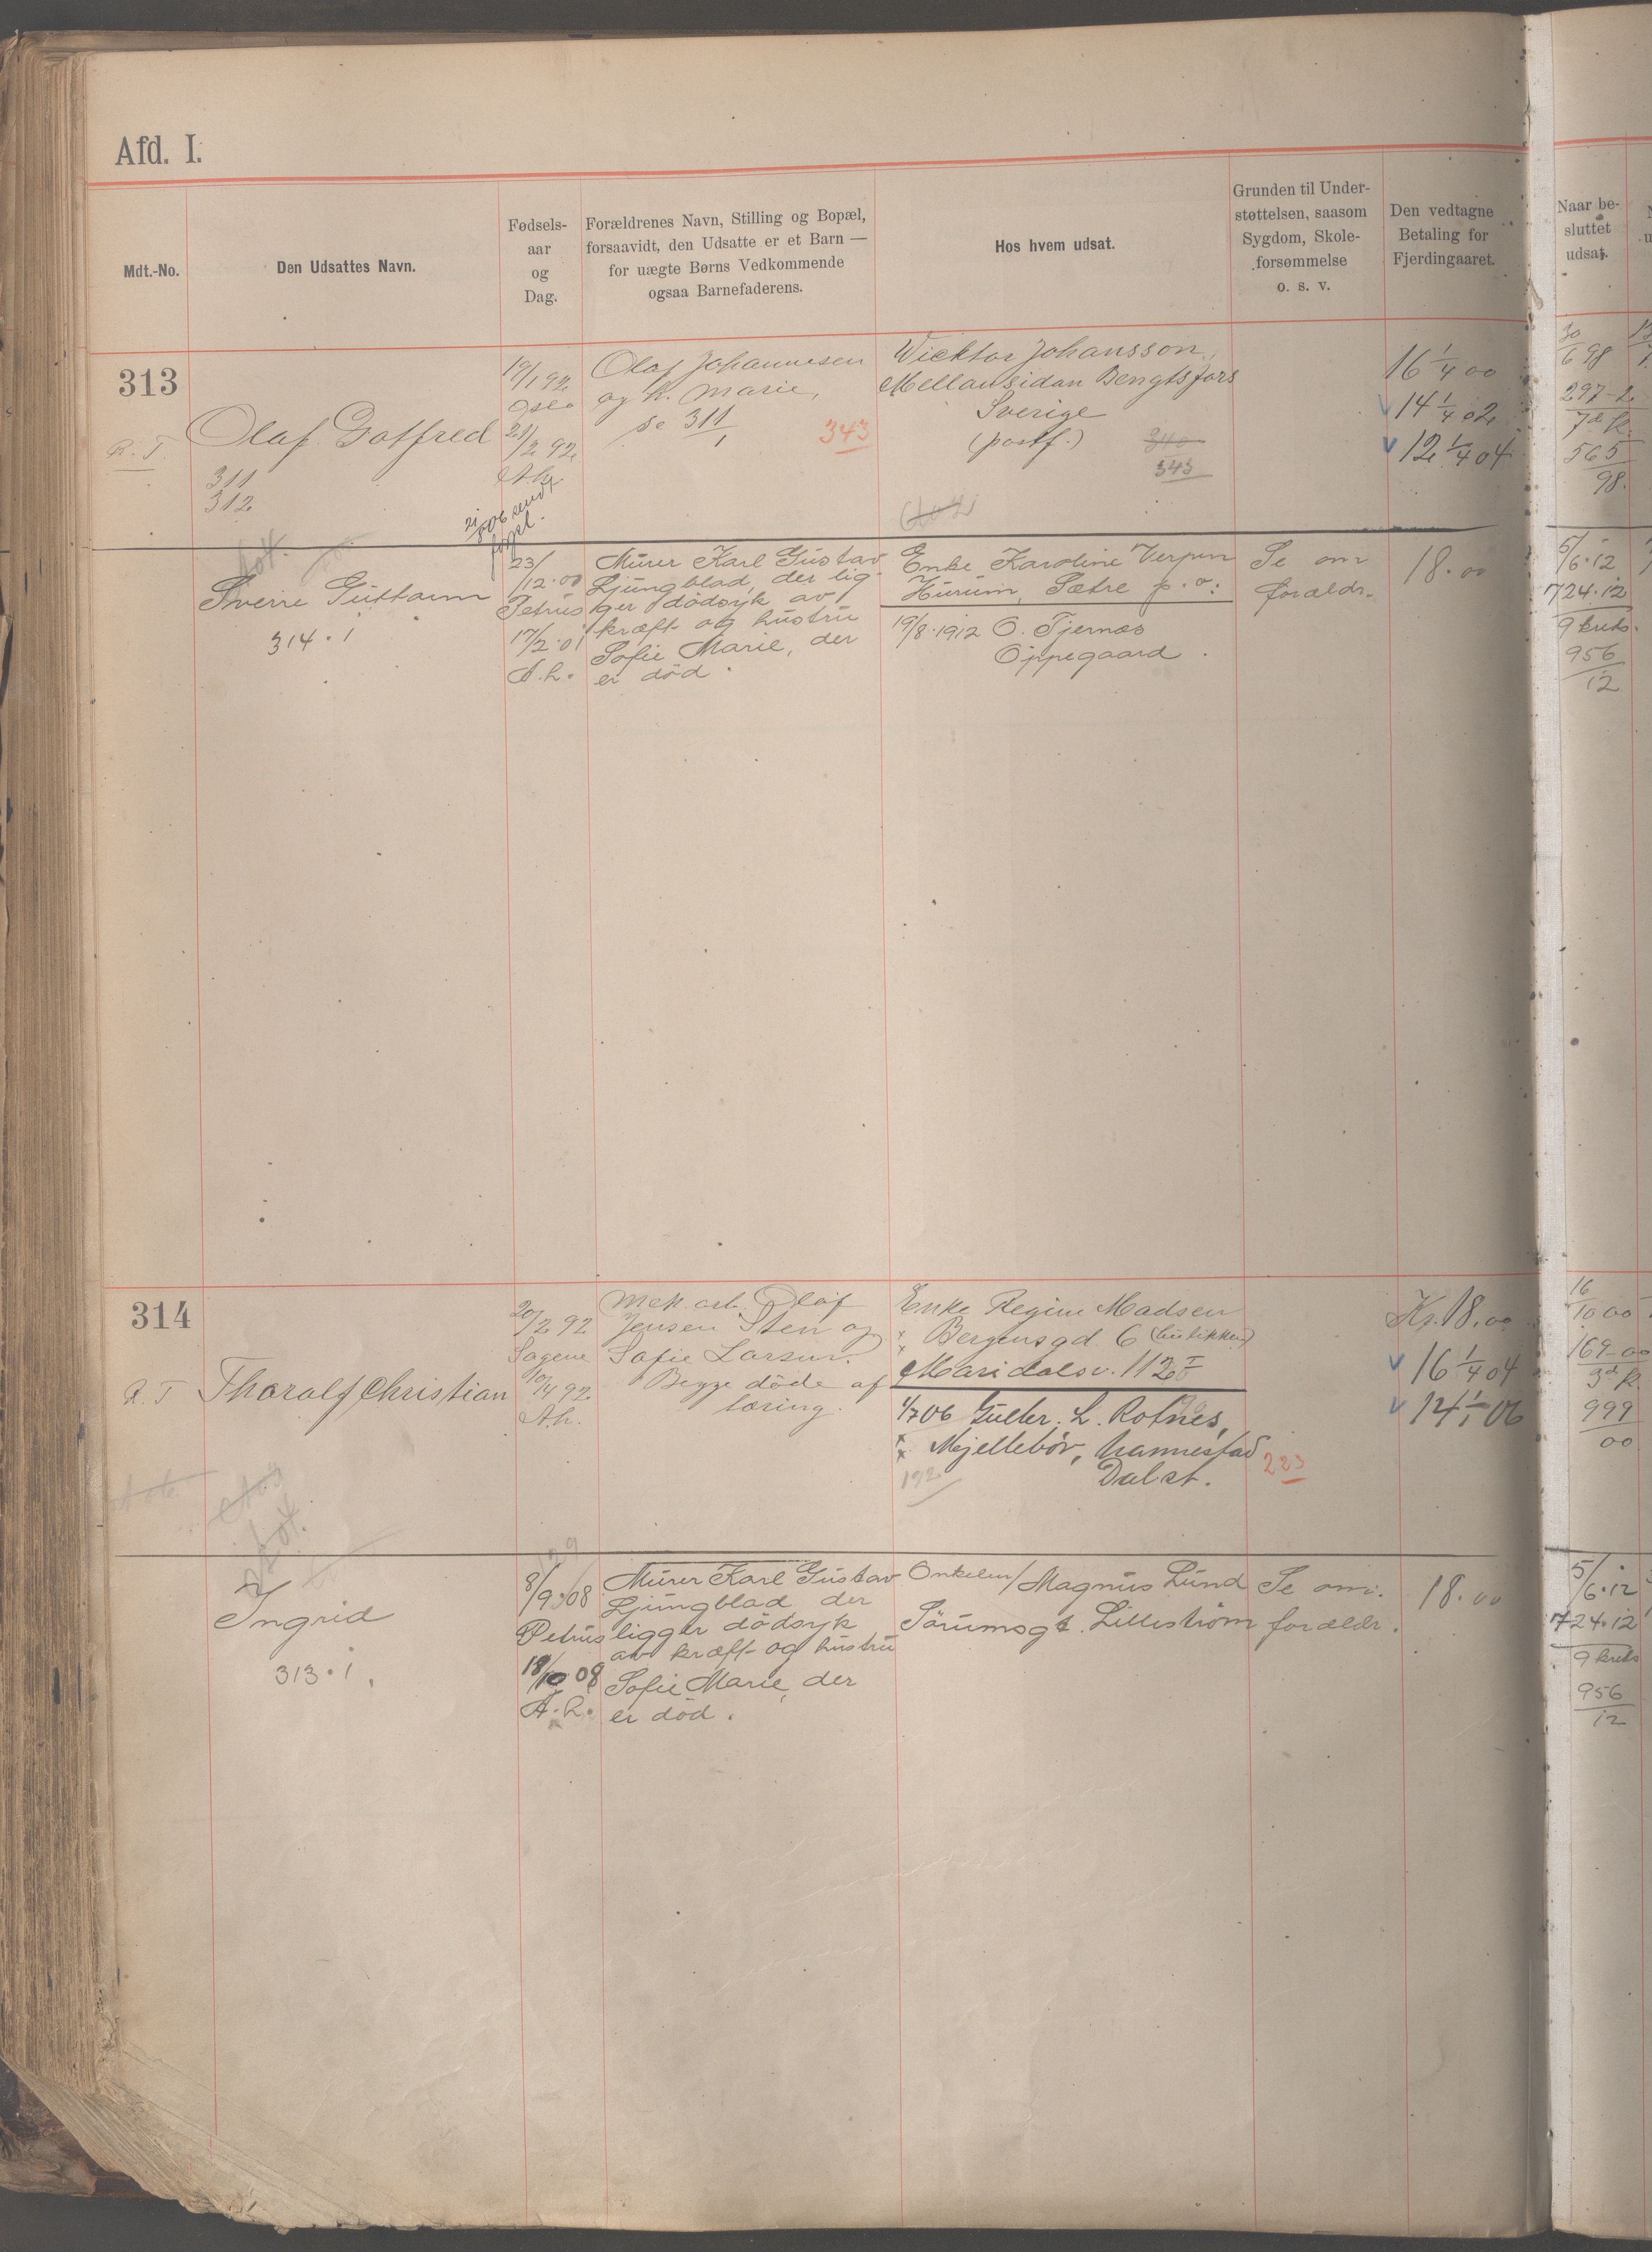 Afd. I.
Mdt.-No.
Den Udsattes Navn.
Fødsels-
aar
og
Dag.
Forældrenes Navn, Stilling og Bopæl,
forsaavidt, den Udsatte er et Barn —
for uægte Børns Vedkommende
ogsaa Barnefaderens.
Hos hvem udsat.
Grunden til Under-
støttelsen, saasom
Sygdom, Skole-
forsømmelse
o. s. v.
Den vedtagne
Betaling for
Fjerdingaaret.
Naar be-
sluttet
udsat.
313
R. T.
Olaf Gotfred
311
312
19/1 92
Oslo
21/2 92
A.h.
Olaf Johannesen
og h. Marie,
se 311/1
343
Wicktor Johansson,
Mellansidan Bengtsfors
Sverige
(postf.)
340
343
16 1/4 00
14 1/4 02
12 1/4 04
30/6 98
297-2
7de k.
565/98
Sverre Gustav
314.1
23/12.00
Petrus
17/2.01
A.h.
Murer Karl Gustav
Ljungblad, der lig-
ger dødsyk av
kræft og hustru
Sofie Marie, der
er död.
Enke Karoline Verpen
Hurum, Sætre p.o.
19/8.1912 O. Tjernæs
Oppegaard.
Se om
forældr.
18.00
5/6.12
724.12
9 kreds.
956/12
314
R. T
Tharalf Christian
20/2 92
Sagene
10/4 92
A.h.
Mek. arb. Olaf
Jensen Sten og
Sofie Larsen.
Begge døde af
tæring.
Enke Regine Madsen
Bergensgd. 6
Maridalsv. 112 I
1/7 06 Gulbr. L. Rotnes,
Mjellebøv, Nannestad
Dal st.
192
223
Kr. 18.00
16 1/4 04
14 1/1 06
16/10 00
169-00
3de k.
999/00
Ingrid
313.1.
8/9.08
Petrus
18/10 08
A.h.
Murer Karl Gustav
Ljungblad der
ligger dödsyk
av kræft og hustru
Sofie Marie, der
er død.
Onkelen / Magnus Lund
Sörumsgt. Lilleström
Se om
forældr.
18.00
5/6.12
724.12
9 kreds
956/12